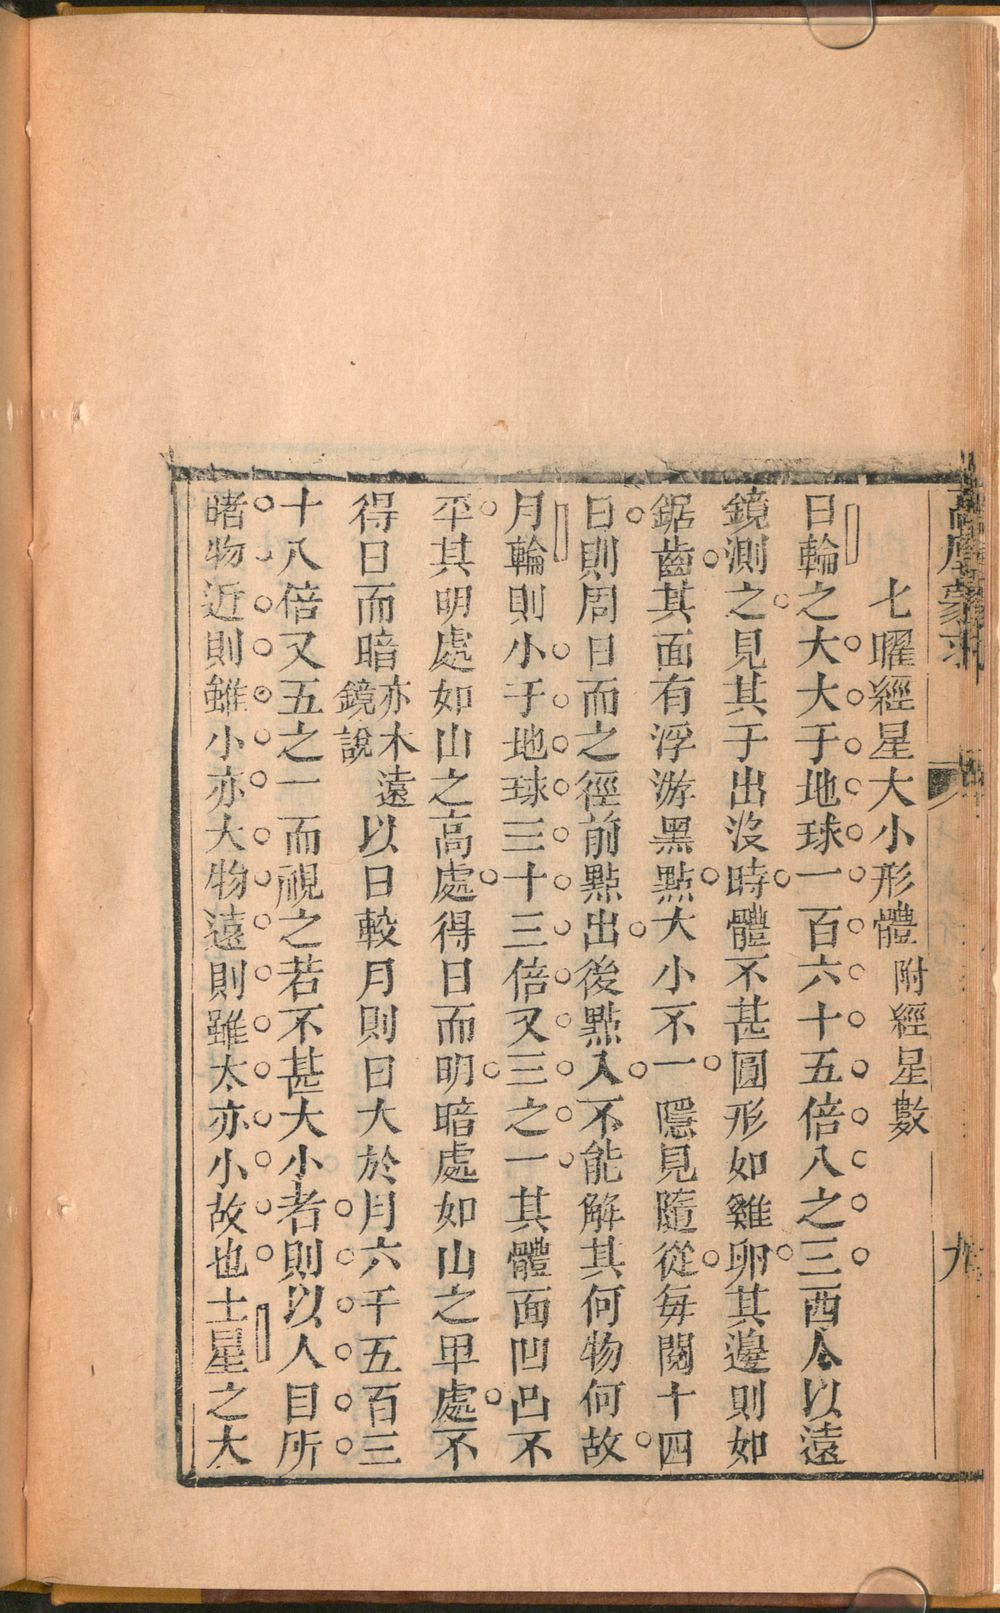 高厚蒙求
九
七曜經星大小形體附經星數
日輪之大大于地球一百六十五倍八之三西人以遠
鏡測之見其于出沒時體不甚圓形如雞卵其邊則如
鋸齒其面有浮游黑點大小不一隱見隨從每閱十四
日則周日而之徑前點出後點入不能解其何物何故
月輪則小于地球三十三倍又三之一其體面凹凸不
平其明處如山之高處得日而明暗處如山之卑處不
得日而暗亦木遠鏡說以日較月則日大於月六千五百三
十八倍又五之一而視之若不甚大小者則以人目所
睹物近則雖小亦大物遠則雖大亦小故也土星之大